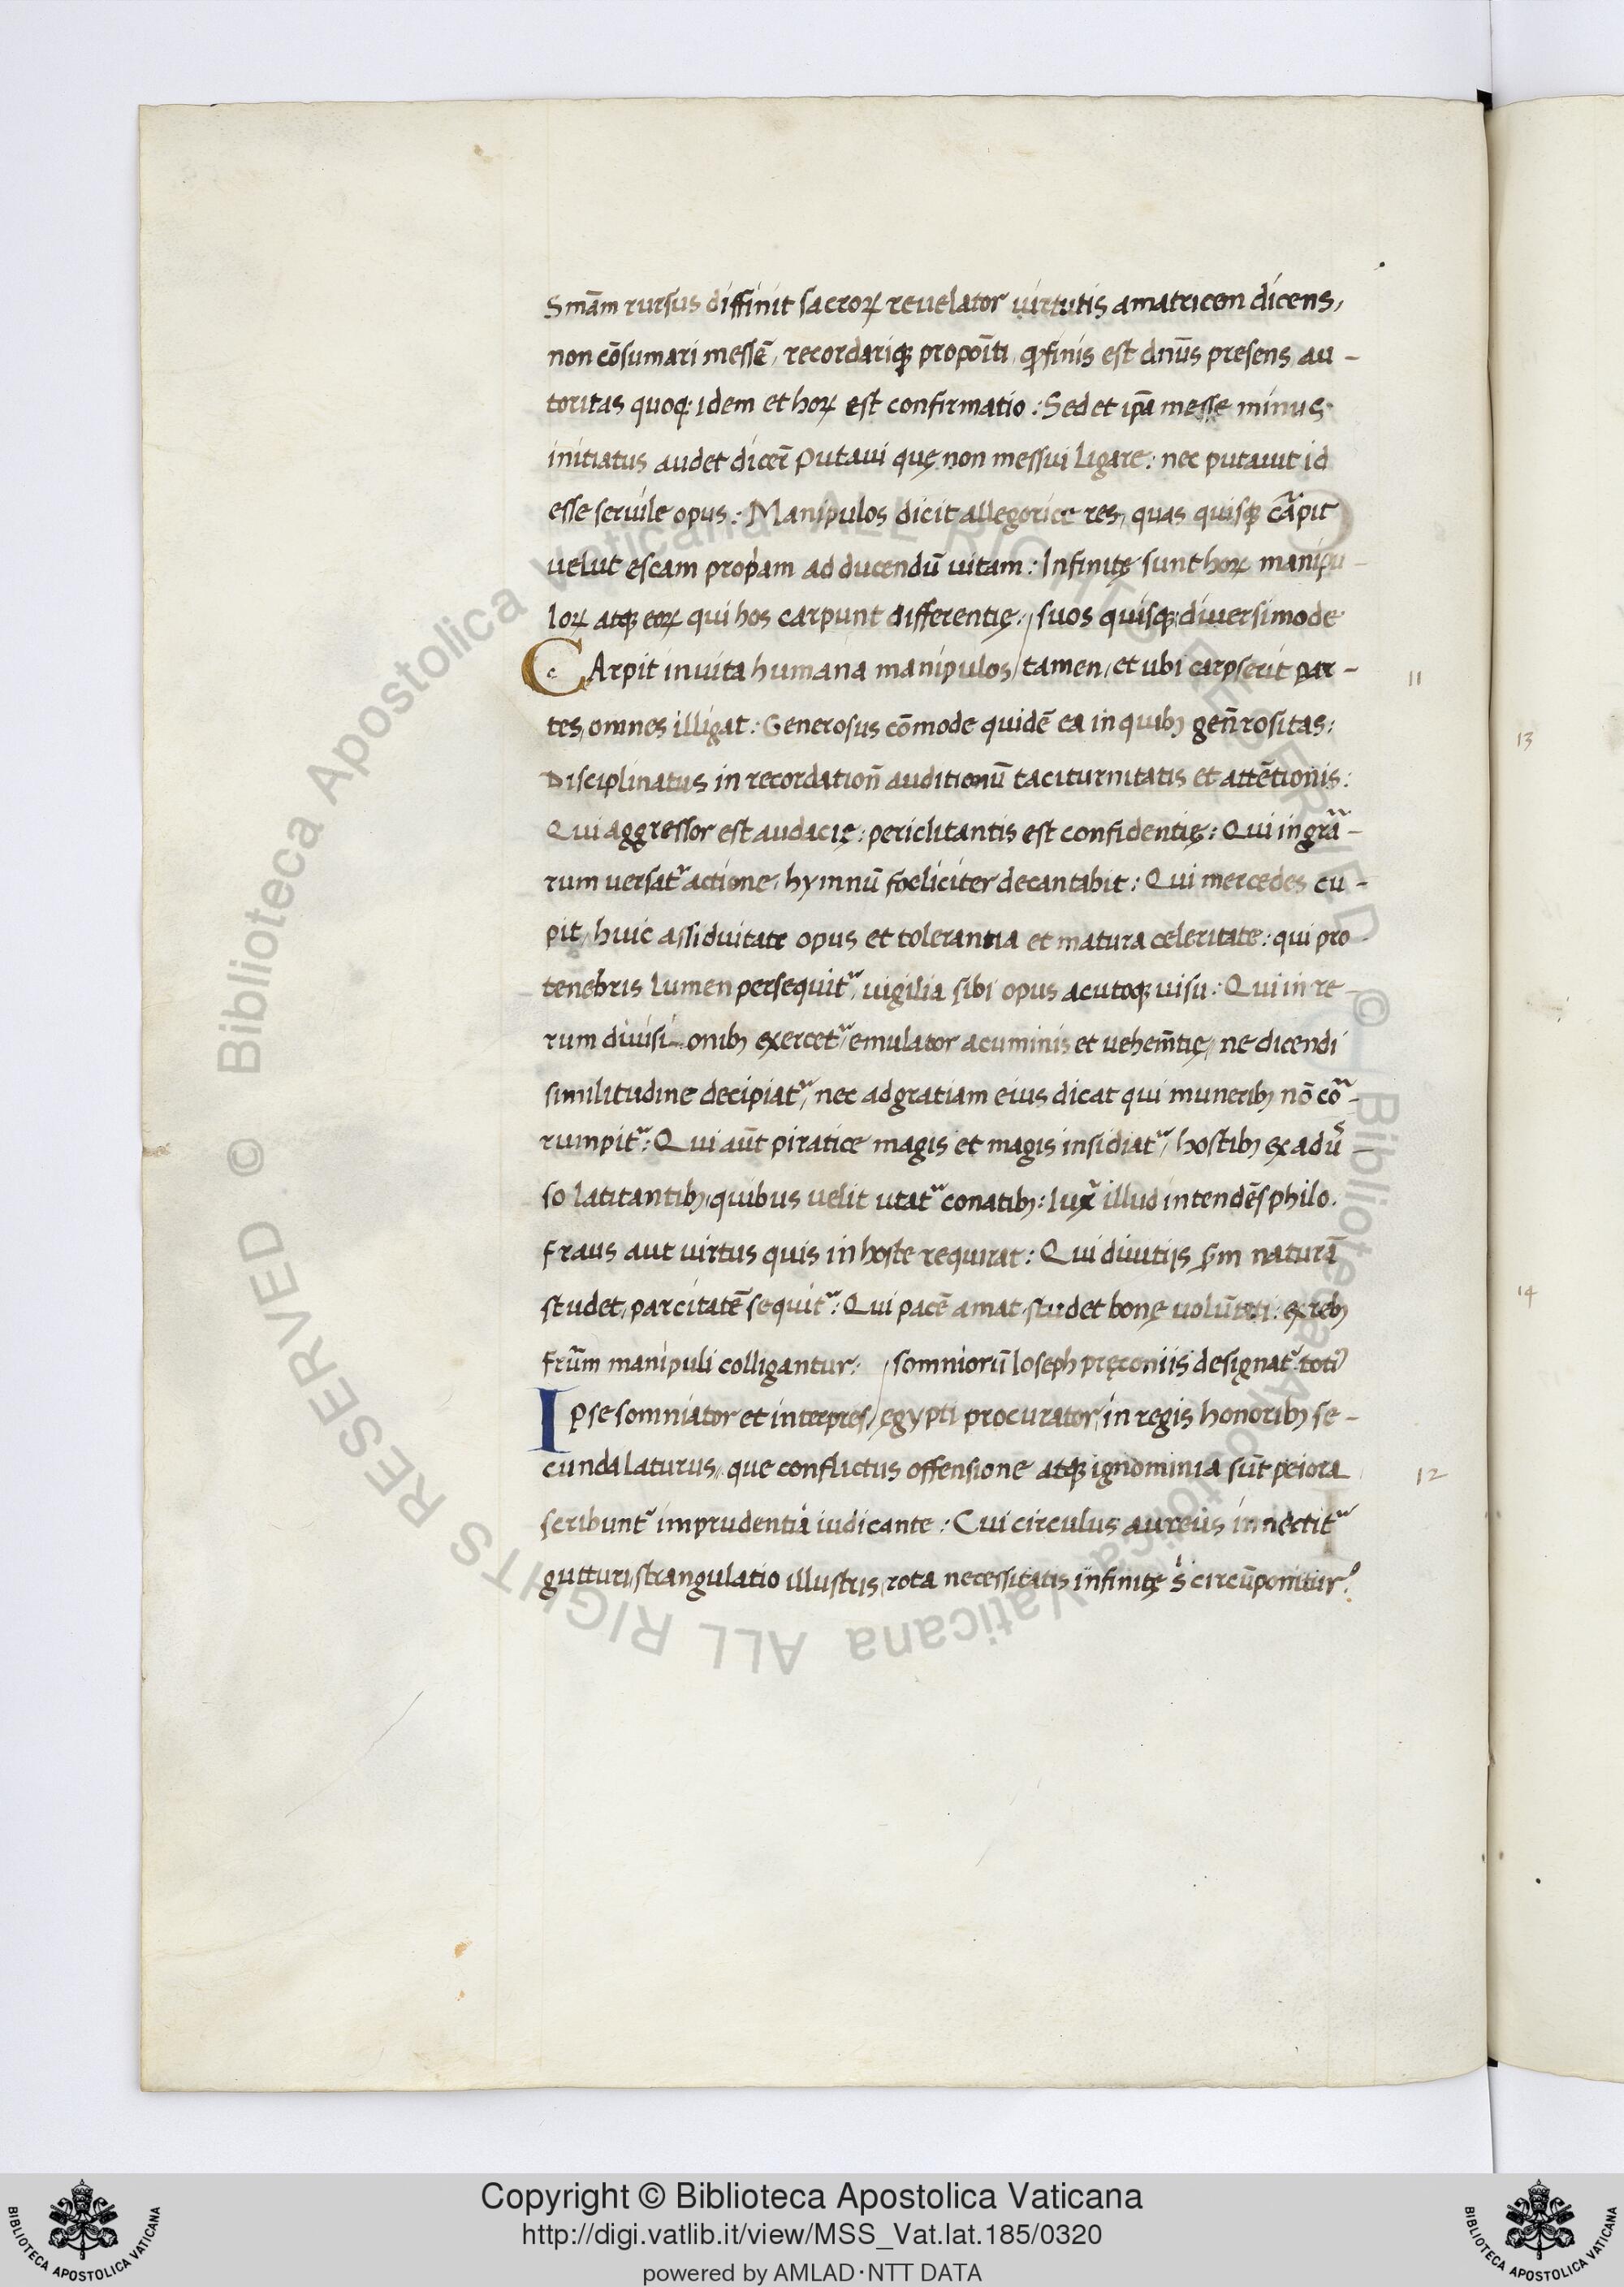 Smãm rursus diffinit sacroꝝ reuelator uirtutis amatricem dicens,
non cõsumari messẽ, recordariqꝫ propoĩti, qꝫ finis est dnũs presens, au-
toritas quoqꝫ idem et hoꝝ est confirmatio: Sed et ip̃a messe minus
initiatus audet dicer̃ Putaui quę non messui ligare: nec putauit id
esse seruile opus: Manipulos dicit allegorice res, quas quisqꝫ cãpit
uelut escam prop̃am ad ducendũ uitam: Infinitę sunt hoꝝ manipu-
loꝝ atqꝫ eoꝝ qui hos carpunt differentię: suos quisqꝫ diuersimode
CArpit in uita humana manipulos, tamen, et ubi carpserit par-
11
tes, omnes illigat: Generosus cõmode quidẽ ea in quibꝫ geñrositas:
13
Disciplinatus in recordation̄ auditionũ taciturnitatis et attẽtionis:
Qui aggressor est audacię: periclitantis est confidentię: Qui in grã-
rum uersat᷑ actione, hymnũ foeliciter decantabit: Qui mercedes cu-
pit, huic assiduitate opus et tolerantia et matura celeritate: qui pro
tenebris lumen persequit᷑, uigilia sibi opus acutoqꝫ uisu: Qui in re-
rum diuisi-onibꝫ exercet᷑, emulator acuminis et uehem̃tię, ne dicendi
similitudine decipiat᷑, nec ad gratiam eius dicat qui muneribꝫ nõ cõ-
rumpit᷑: Qui aũt piratice magis et magis insidiat᷑, hostibꝫ ex adũ-
so latitantibꝫ, quibus uelit utat᷑ conatibꝫ: Iux̃ illud intendẽs philo.
fraus aut uirtus quis in hoste requirat: Qui diuitijs s̃m naturã
studet, parcitatẽ sequit᷑: Qui pacẽ amat, studet bonę uolũtati: ex rebꝫ
14
frũm manipuli colligantur: somniorũ Ioseph pręconiis designat᷑ toti᷒
IPse somniator et interpres, egypti procurator, in regis honoribꝫ se-
cunda laturus, que conflictus offensione atqꝫ ignominia sũt peiora
12
scribunt᷑ imprudentia iudicante: Cui circulus aureus innectit᷑
gutturi, strangulatio illustris, rota necessitatis infinitę s̃ circũponitur?
Copyright © Biblioteca Apostolica Vaticana
http://digi.vatlib.it/view/MSS_Vat.lat.185/0320
powered by AMLAD·NTT DATA
BIBLIOTECA APOSTOLICA VATICANA
BIBLIOTECA APOSTOLICA VATICANA
© Biblioteca Apostolica Vaticana ALL RIGHTS RESERVED
© Biblioteca Apostolica Vaticana ALL RIGHTS RESERVED